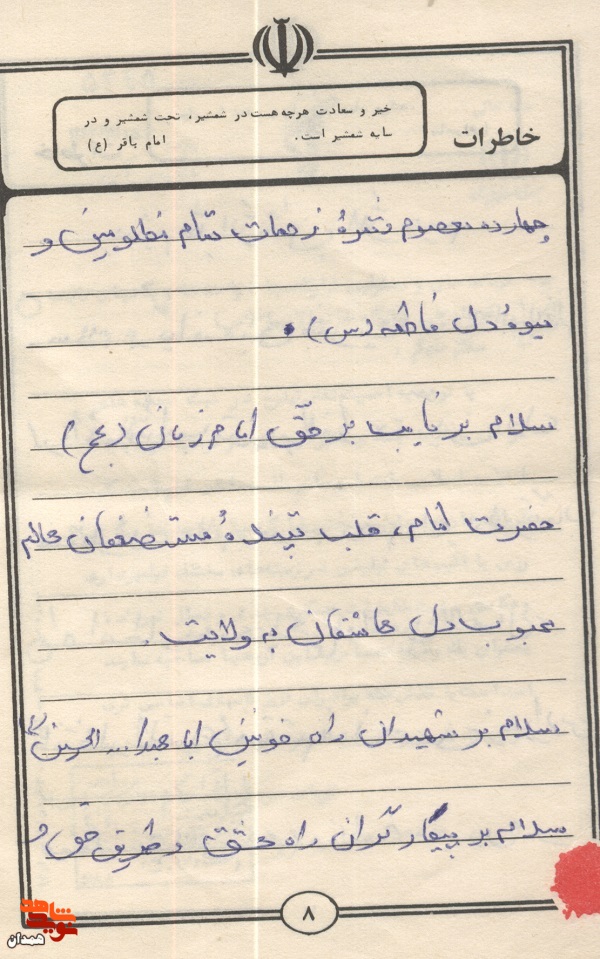 خیر و سعادت هرچه هست در شمشیر، تحت شمشیر و در
سایه شمشیر است. امام باقر (ع)
خاطرات
چهارده معصوم و ثمرهٔ زحمات تمام مظلومین و
میوهٔ دل فاطمه (س).
سلام بر نایب بر حقّ امام زمان (عج)
حضرت امام، قلب تپندهٔ مستضعفان عالم
محبوب دل عاشقان به ولایت.
سلام بر شهیدان راه خونین ابا عبدا... الحسین (ع)
سلام بر پیکارگران راه عشق و طریق حق و
۸
همدان